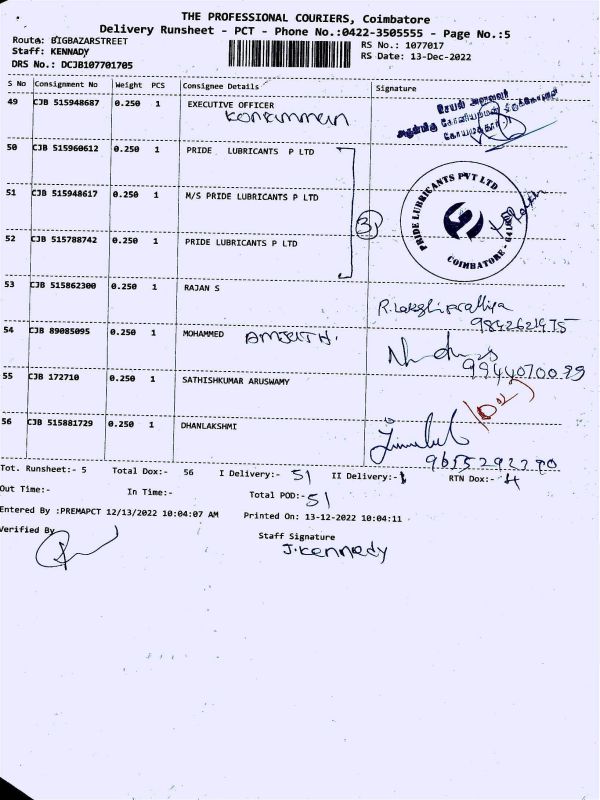 THE PROFESSIONAL COURIERS, Coimbatore
Delivery Runsheet - PCT - Phone No.:0422-3505555 - Page No.:5
Route: BIGBAZARSTREET
Staff: KENNADY
DRS No.: DCJB107701705
RS No.: 1077017
RS Date: 13-Dec-2022
S No Consignment No Weight PCS Consignee Details Signature
49 CJB 515948687 0.250 1 EXECUTIVE OFFICER
செயல் அலுவலர்
50 CJB 515960612 0.250 1 PRIDE LUBRICANTS P LTD
51 CJB 515948617 0.250 1 M/S PRIDE LUBRICANTS P LTD
3
PRIDE LUBRICANTS PVT LTD
COIMBATORE
52 CJB 515788742 0.250 1 PRIDE LUBRICANTS P LTD
53 CJB 515862300 0.250 1 RAJAN S
54 CJB 89085095 1 0.250 1 MOHAMMED
55 CJB 172710 0.250 1 SATHISHKUMAR ARUSWAMY
56 CJB 515881729 0.250 1 DHANLAKSHMI
Tot. Runsheet:- 5 Total Dox:- 56 I Delivery:- 51 II Delivery:- 1 RTN Dox:- 4
Out Time:- In Time:- Total POD:- 51
Entered By :PREMAPCT 12/13/2022 10:04:07 AM Printed On: 13-12-2022 10:04:11
Verified By
Staff Signature
J.Kennady